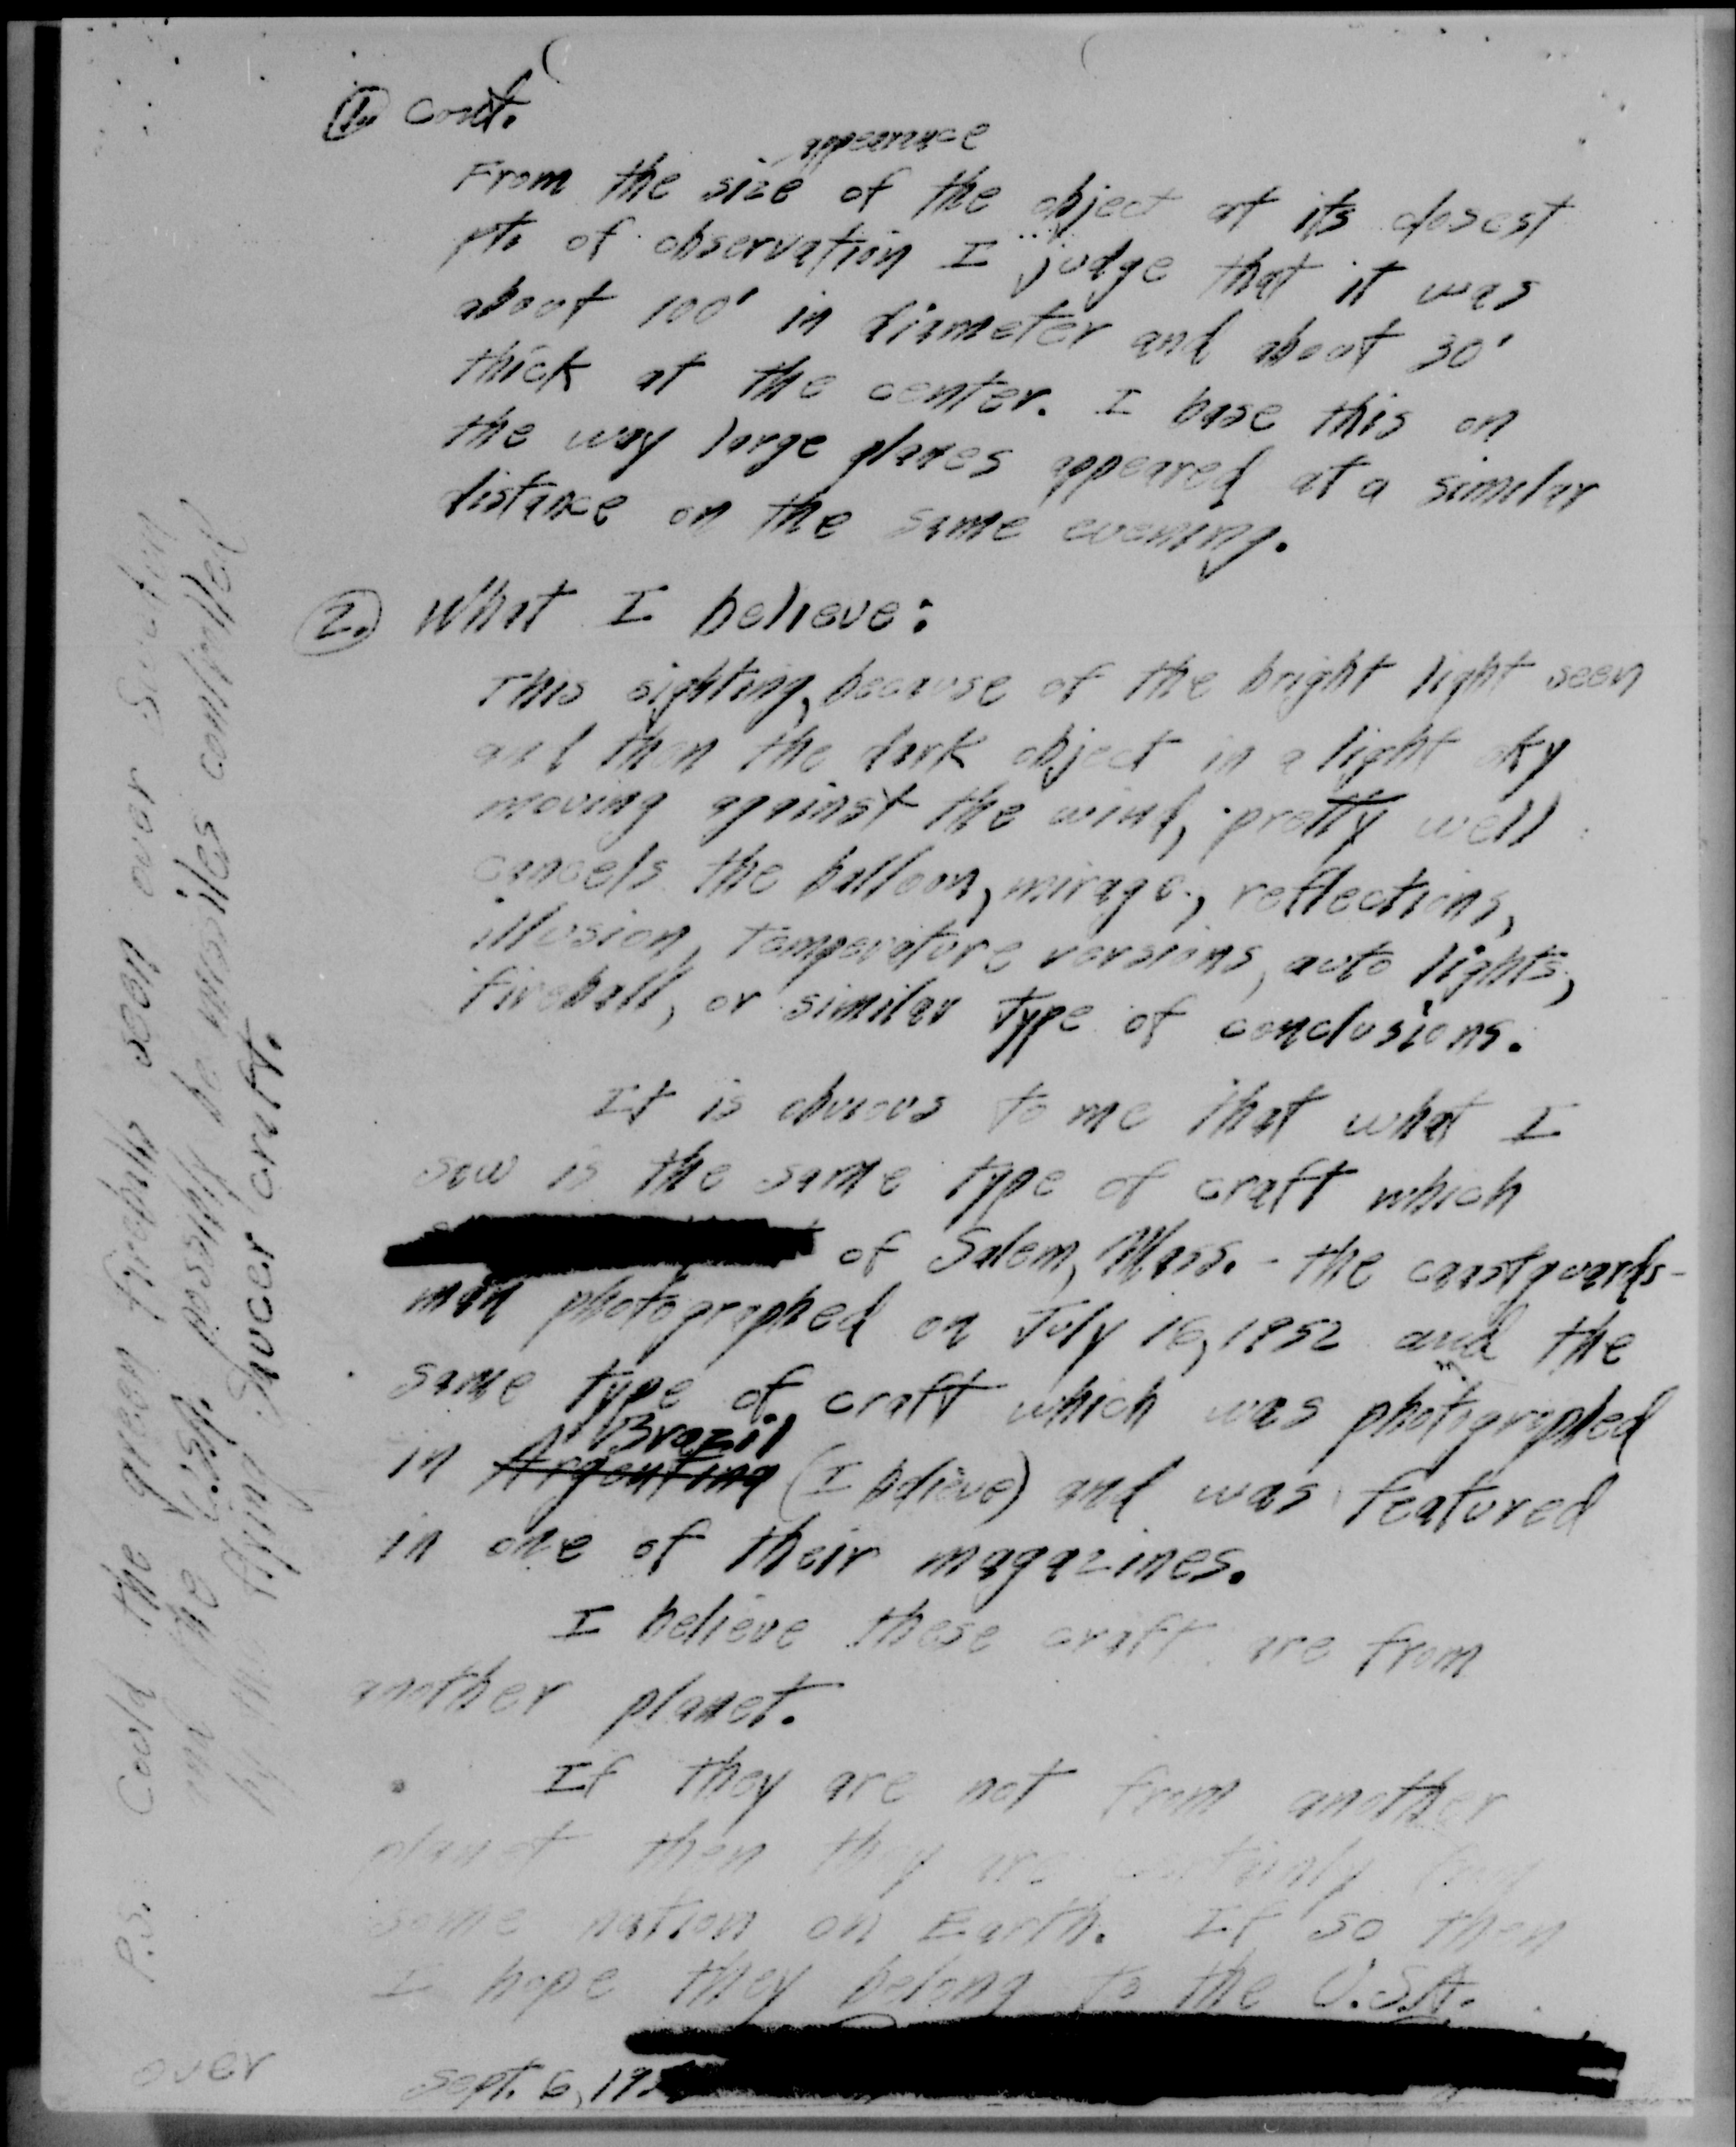 1. cont.
appearance
From the size of the object at its closest
pt. of observation I judge that it was
about 100' in diameter and about 30'
thick at the center. I base this on
the way large planes appeared at a similar
distance on the same evening.
2. What I believe:
This sighting, because of the bright light seen
and then the dark object in a light sky
moving against the wind, pretty well
cancels the balloon, mirage, reflections,
illusion, temperature versions, auto lights,
fireball, or similar type of conclusions.
It is obvious to me that what I
saw is the same type of craft which
of Salem, Mass. - the coastguards-
man photographed on July 16, 1952 and the
same type of craft which was photographed
Brazil
in Argentina (I believe) and was featured
in one of their magazines.
I believe these craft are from
another planet.
If they are not from another
planet then they are certainly from
some nation on Earth. If so then
I hope they belong to the U.S.A.
Sept. 6, 195
P.S. Could the green fireballs seen over Sweden
and the U.S. possibly be missiles controlled
by the flying saucer craft.
over